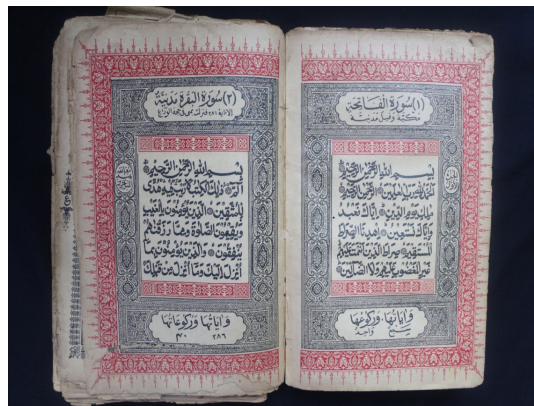 (١) سُورَةُ الْفَاتِحَةِ
مَكِّيَّة وَقِيلَ مَدَنِيَّة
بِسْمِ اللهِ الرَّحْمٰنِ الرَّحِيْمِ
اَلْحَمْدُ لِلّٰهِ رَبِّ الْعٰلَمِيْنَ الرَّحْمٰنِ الرَّحِيْمِ
مٰلِكِ يَوْمِ الدِّيْنِ اِيَّاكَ نَعْبُدُ
وَاِيَّاكَ نَسْتَعِيْنُ اِهْدِنَا الصِّرَاطَ
الْمُسْتَقِيْمَ صِرَاطَ الَّذِيْنَ اَنْعَمْتَ عَلَيْهِمْ
غَيْرِ الْمَغْضُوْبِ عَلَيْهِمْ وَلَا الضَّآلِّيْنَ
وَاٰيَاتُهَا وَرُكُوْعُهَا
سبع واحد
(٢) سُورَةُ الْبَقَرَةِ مَدَنِيَّة
بِسْمِ اللهِ الرَّحْمٰنِ الرَّحِيْمِ
الٓمّٓ ذٰلِكَ الْكِتٰبُ لَا رَيْبَ فِيْهِ هُدًى
لِّلْمُتَّقِيْنَ الَّذِيْنَ يُؤْمِنُوْنَ بِالْغَيْبِ
وَيُقِيْمُوْنَ الصَّلٰوةَ وَمِمَّا رَزَقْنٰهُمْ
يُنْفِقُوْنَ وَالَّذِيْنَ يُؤْمِنُوْنَ بِمَا
اُنْزِلَ اِلَيْكَ وَمَا اُنْزِلَ مِنْ قَبْلِكَ
وَاٰيَاتُهَا وَرُكُوْعَاتُهَا
٢٨٦ ٤٠